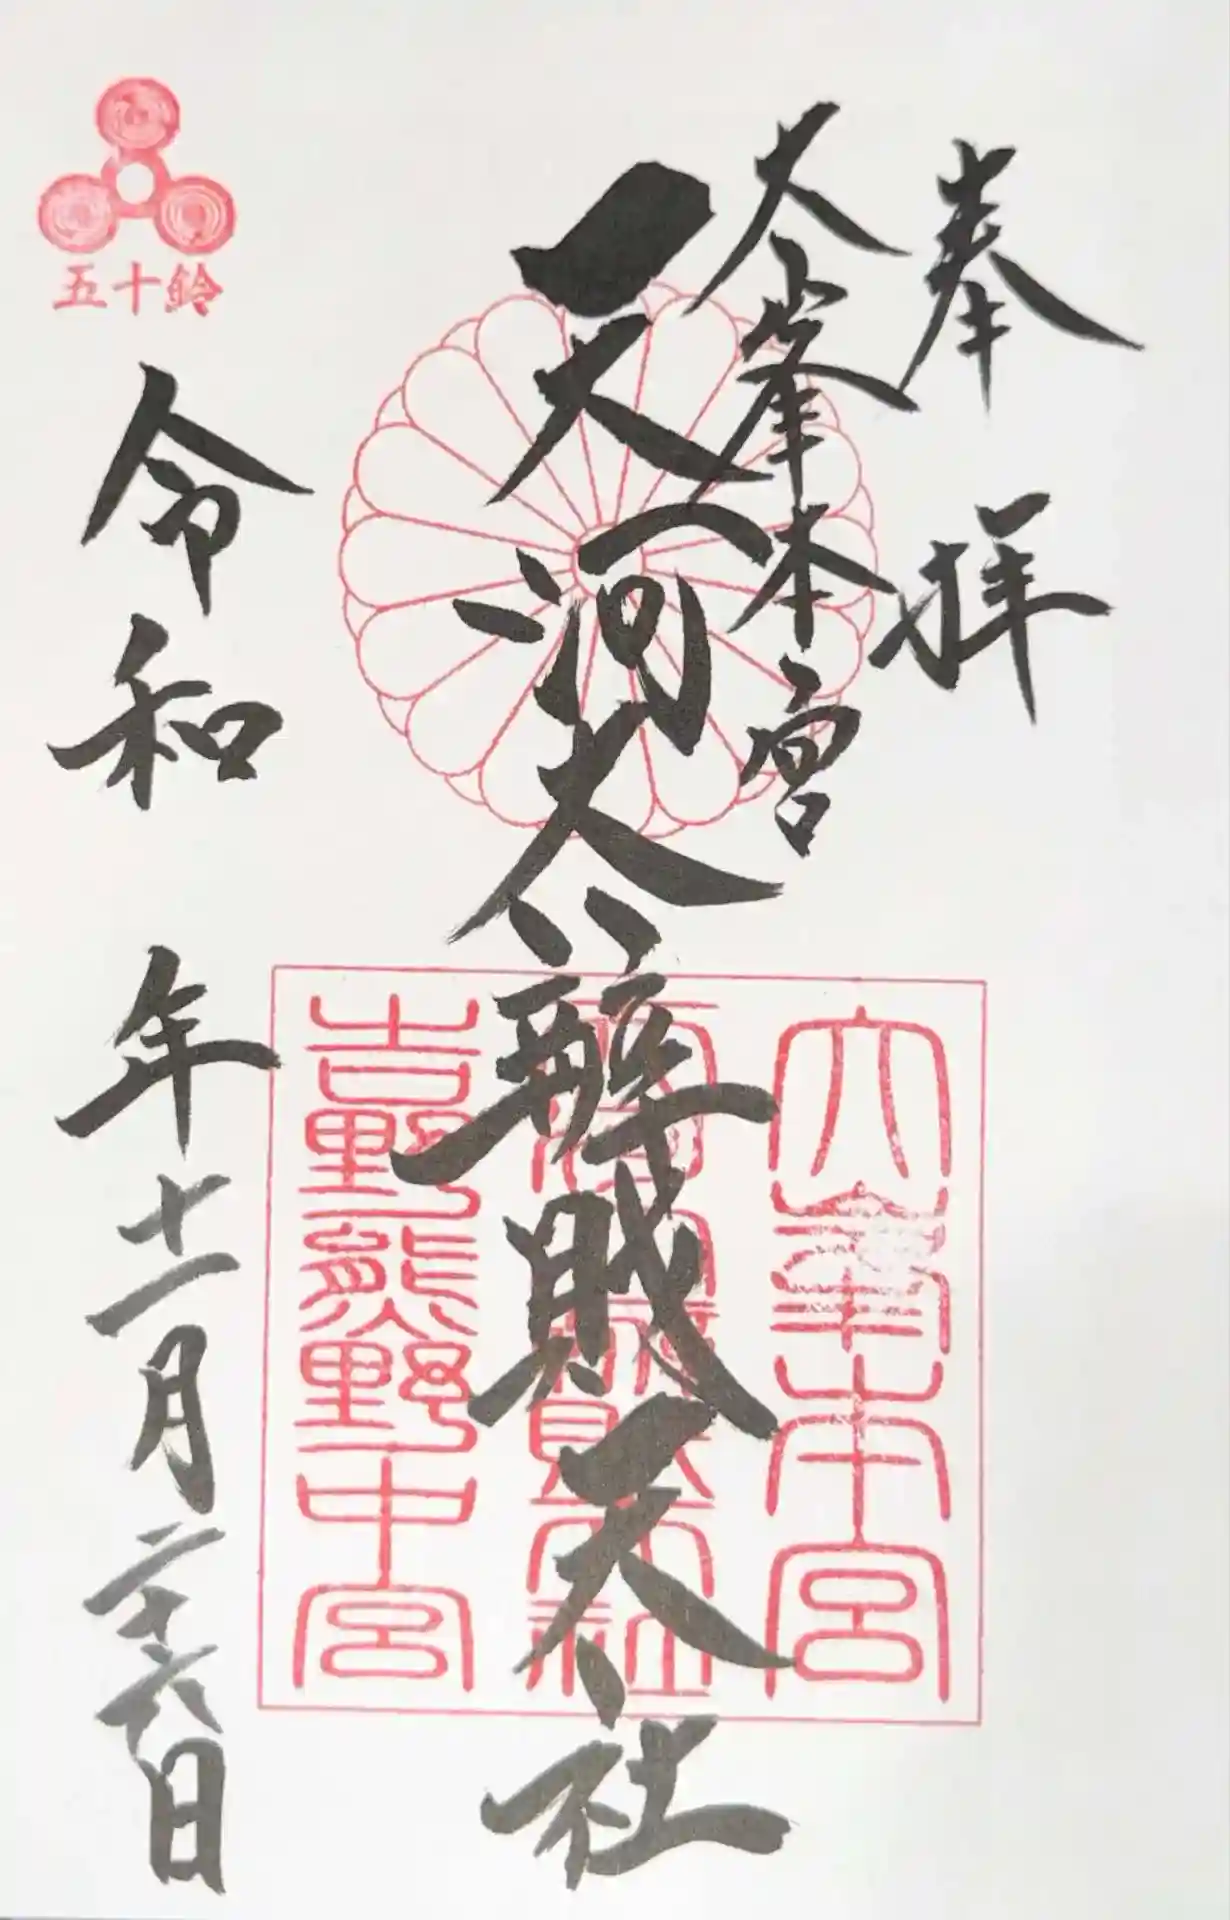 奉拝
大峯本宮
天河大辨財天社
五十鈴
令和 年十一月二十六日
大峯本宮
吉野熊野中宮